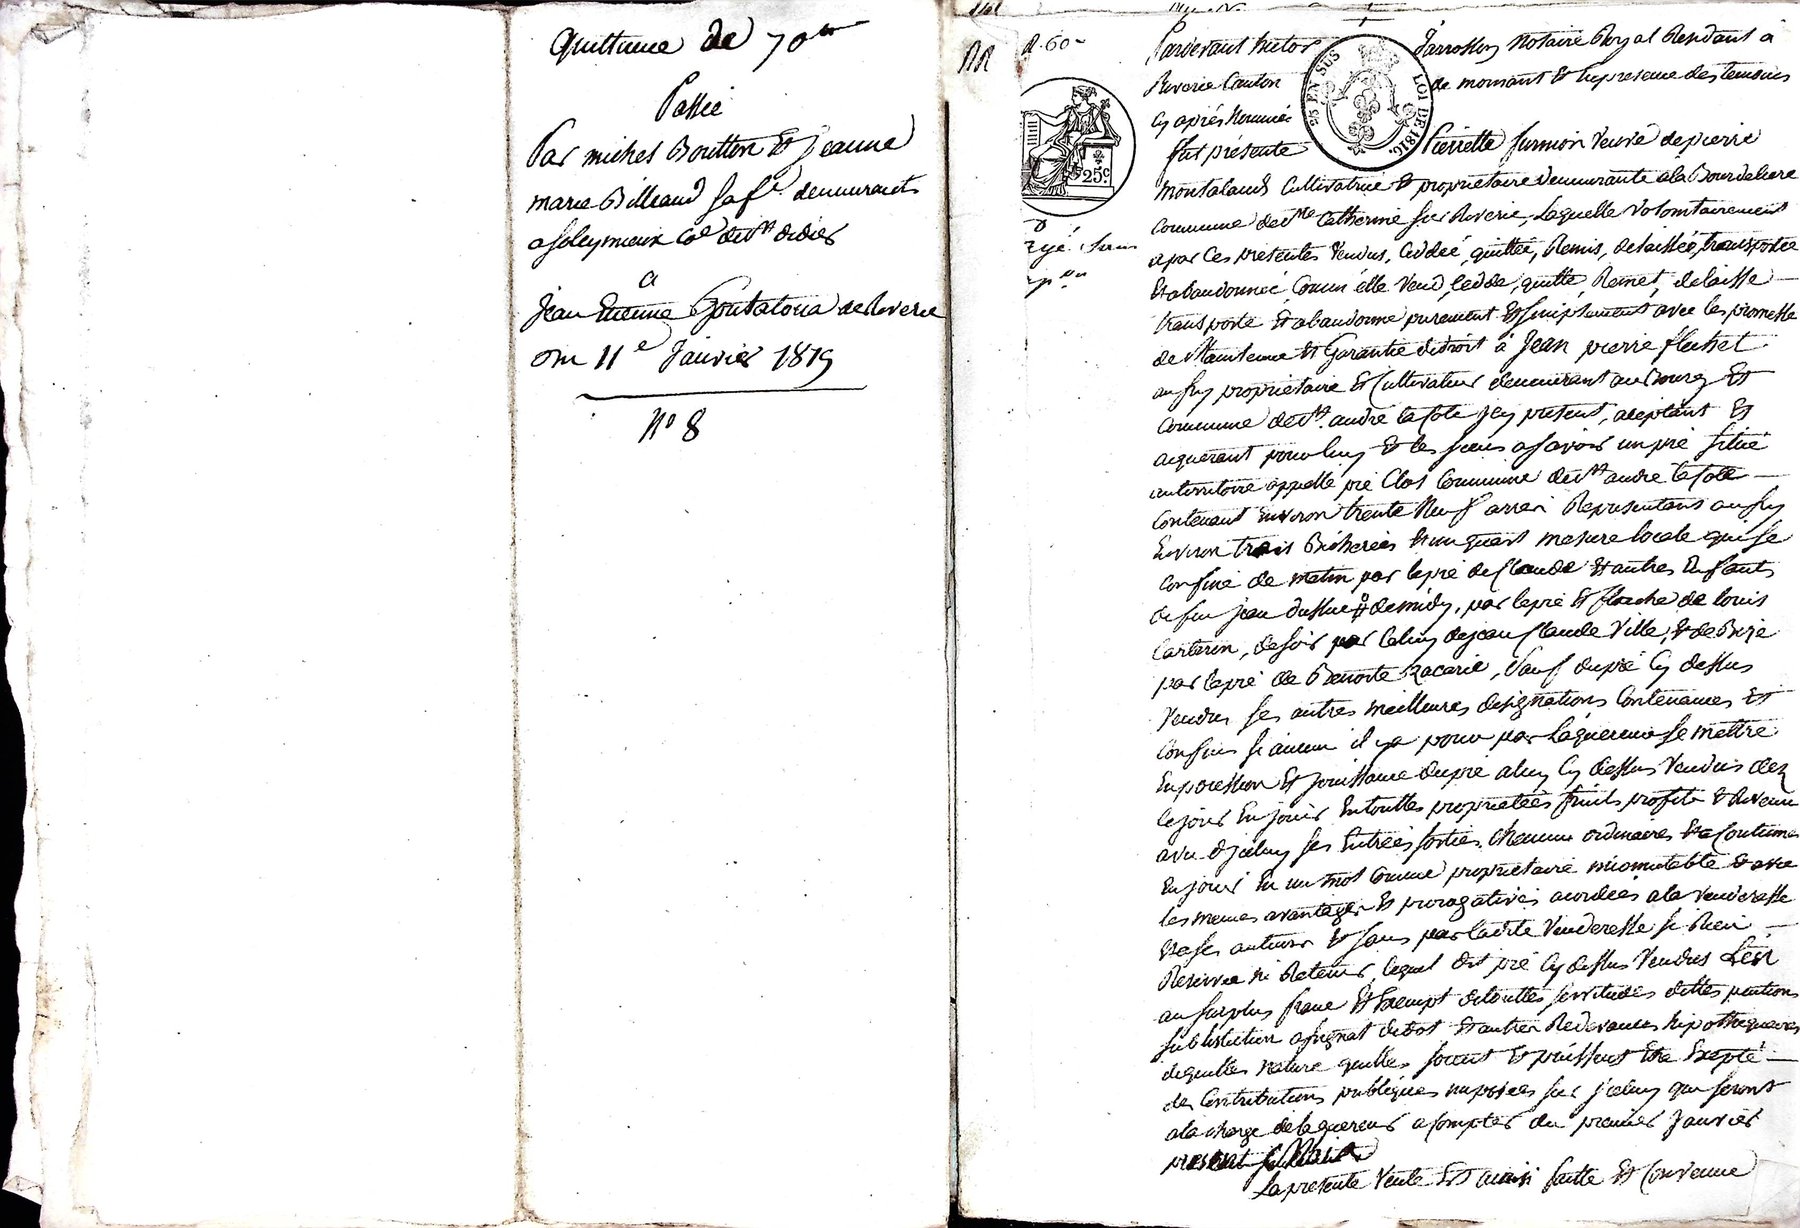 Quittance de 70
Passé
Par michel Boutton Et Jeanne
marie Billiand sa fe demeurants
a soleymieux Coe de St didier
a
Jean Etienne de Riverie
Du 11e Janvier 1819
No 8
RR
R. 60
25c
25 EN SUS
LOI DE 1816.
Pardevant hector Jarrosson Notaire Royal Residant à
Riverie Canton de mornant Et En presence des temoins
Cy après Nommés
fut présente Pierrette furnion veuve de pierre
montaland Cultivatrice Et propriétaire demeurante a la Bourdeliere
Commune de Ste Catherine sur Riverie, Laquelle volontairement
a par Ces presentes vendus, Ceddée, quittée, Remis, delaissée, transportée
Et abandonnée Comm'elle vend, Cedde, quitte, Remet, delaisse
transporte Et abandonne purement Et simplement avec les promesse
de Maintenue Et Garantie de droit à Jean pierre fléchet
aussy propriétaire Et Cultivateur demeurant au Bourg Et
Commune de St andré la Cote icy présent, aceptant Et
aquerant pour luy Et les siens a savoir un pré situé
au territoire appellé pré Clos Commune de St andré la Cote
Contenant Environ trente Neuf arres Representans aussy
Environ trois Bicherées Et un quart mesure locale qui se
Confine de matin par le pré de Claude Et autres Enfants
de feu jean de midy, par le pré Et de Louis
de soir par Celuy de jean Claude Ville, Et de Bize
par le pré de Benoite Zacarie, sauf du pré Cy dessus
Vendus ses autres meilleures designations Contenances Et
Confins si aucun il y a pour par L'aquereur se mettre
En possession Et jouissance du pré a luy Cy dessus Vendus dez
Ce jour En jouir En touttes proprietées fruits profits Et Revenus
avec d'jceluy ses Entrées sorties, Chemins ordinaires Et acoutumés
En jouir En un mot Comme propriétaire incomutable Et avec
les memes avantages Et prérogatives acordées a la Venderesse
Et a ses auteurs Et sans par ladite Venderesse si Rien
Reserver ni Retenir, lequel dit pré Cy dessus Vendus Est
au surplus franc Et Exempt de touttes servitudes dettes pentions
substitution assignat de dot Et autres Redevances hipothequaires
de quelles nature quelles soient Et puissent Etre Excepté
des Contributions publiques imposées sur jceluy qui seront
a la charge de l'aquereur a Compter du premier janvier
present
La presente Vente Est ainsi faitte Et Convenue